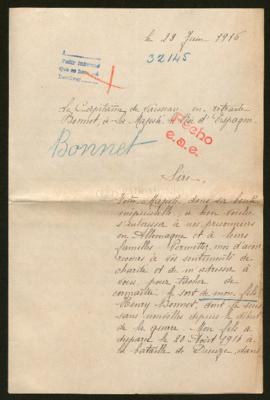 le 23 Juin 1916
32145
Le Capitaine de Vaisseau en retraite
Bonnet, à Sa Majesté le Roi d'Espagne.
Hecho
e.a.e.
Bonnet
Sire,
Votre Majesté, dans sa bonté
inépuisable, a bien voulu
s'intéresser à nos prisonniers
en Allemagne et à leurs
familles. Permettez moi d'avoir
recours à vos sentiments de
charité et de m'adresser à
vous pour tâcher de
connaître le sort de mon fils
Henry Bonnet, dont je suis
sans nouvelles depuis le début
de la guerre. Mon fils a
disparu le 20 Août 1914 à
la bataille de Dieuze, dans